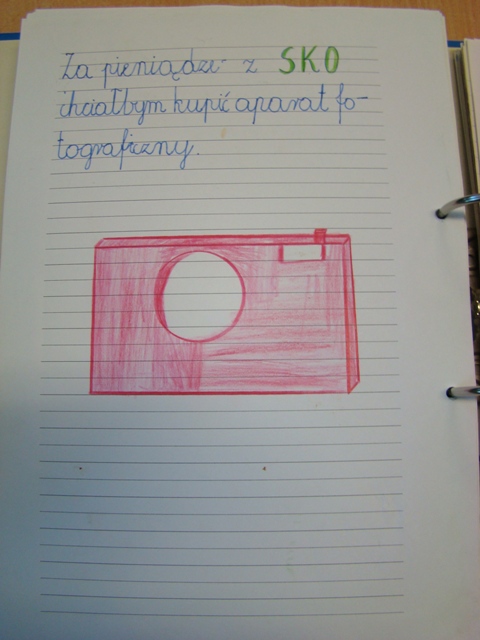 Za pieniądze z SKO
chciałbym kupić aparat fo-
tograficzny.